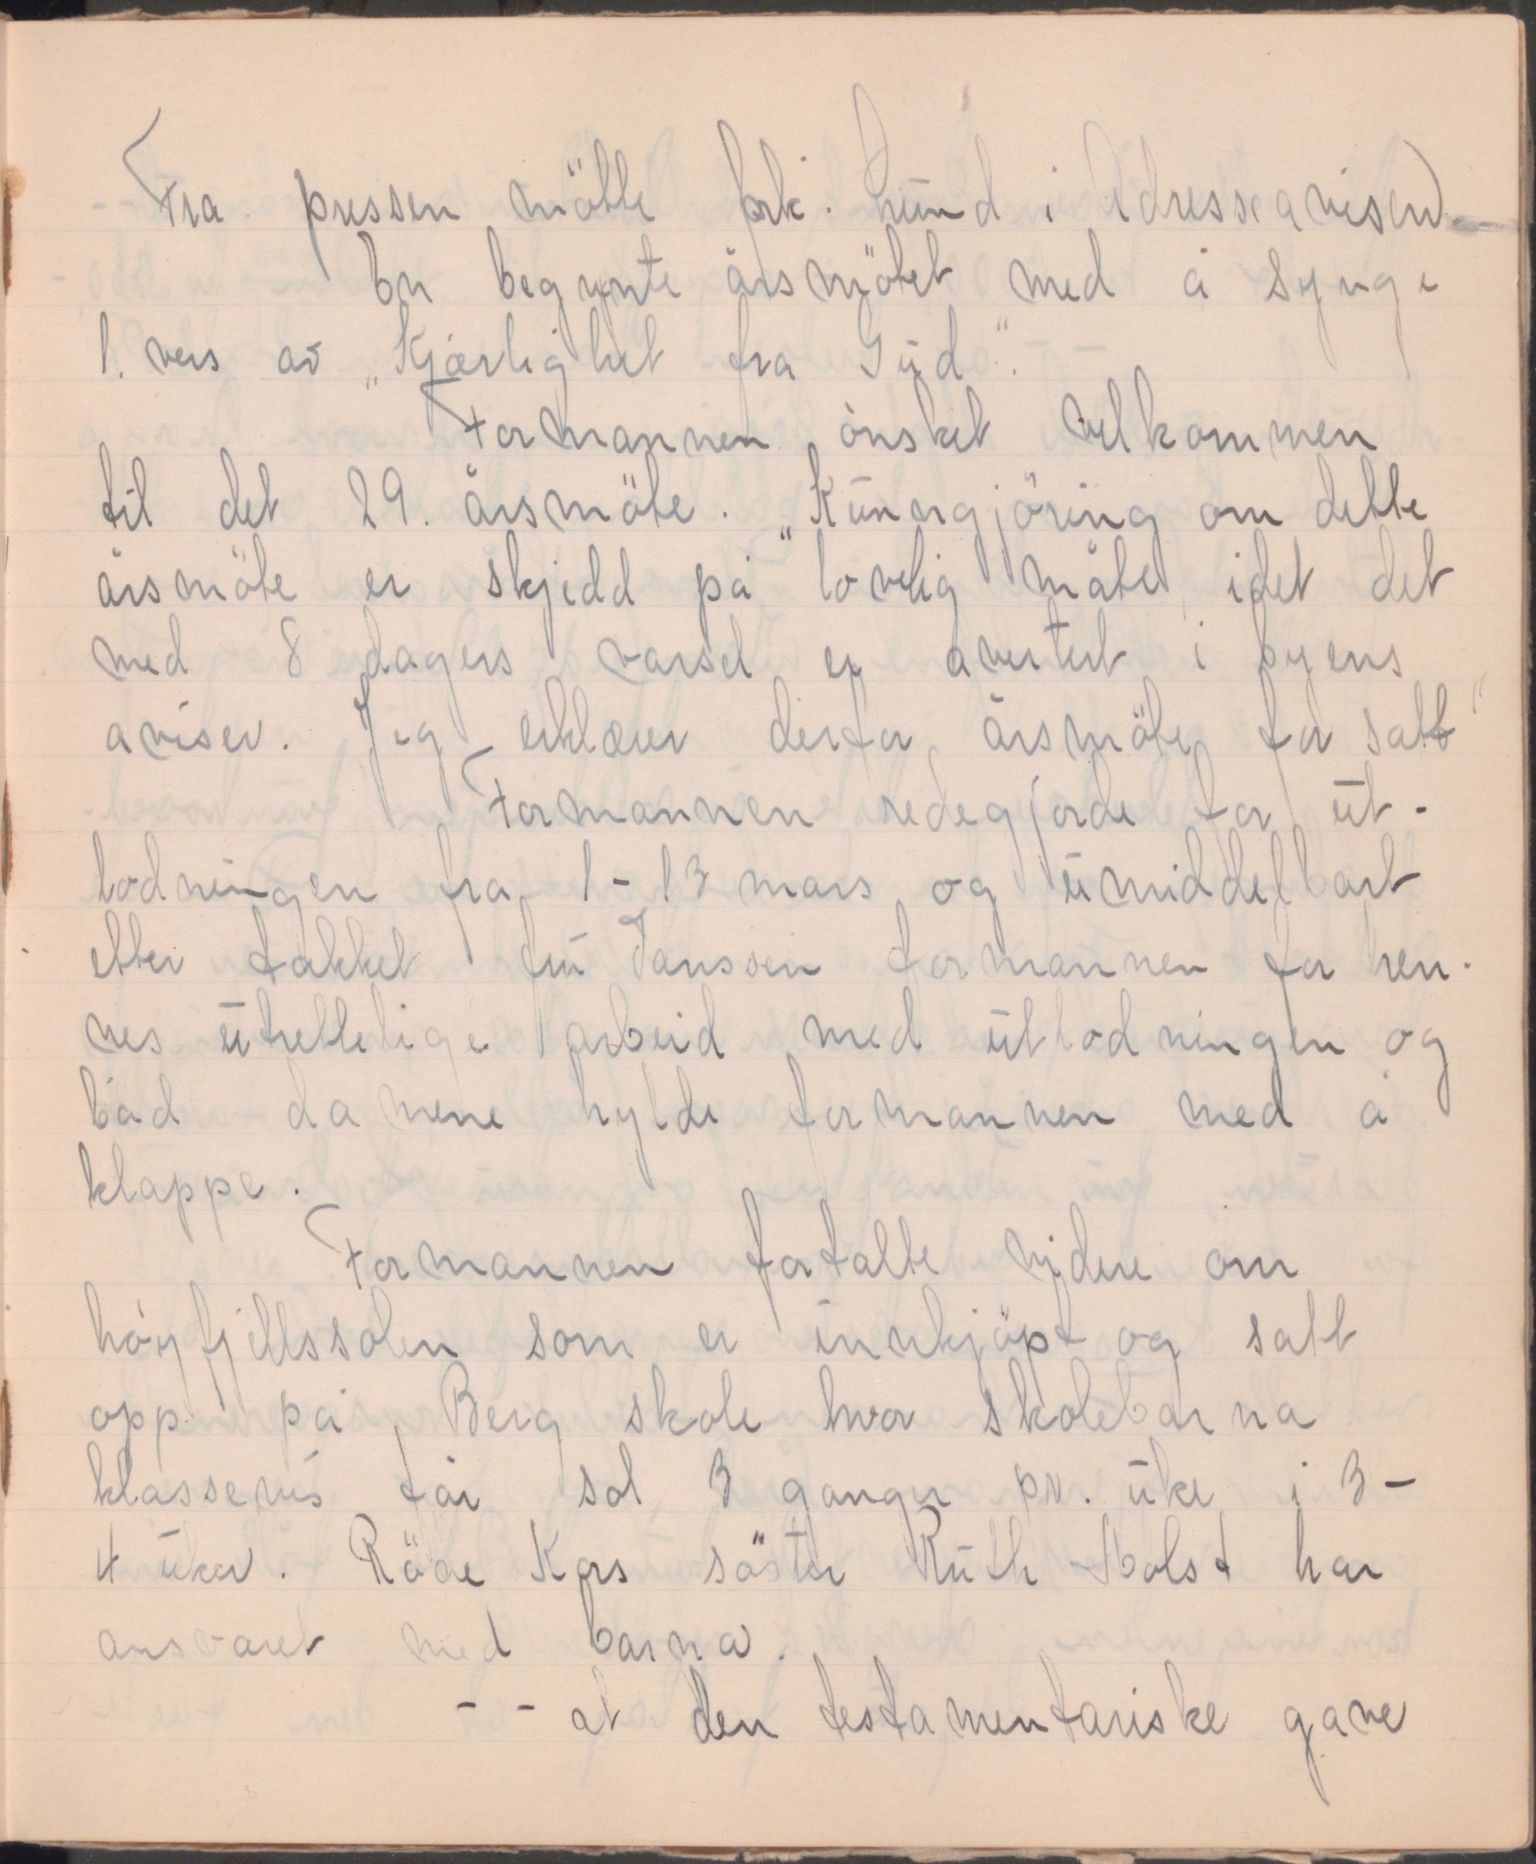 Fra pressen mötte frk. Lund i Adresseavisen.
En begynte årsmötet med å synge
1. vers av „Kjærlighet fra Gud".
Formannen ønsket velkommen
til det 29. årsmöte. „Kunngjöring om dette
årsmöte er skjedd på lovlig måte, idet det
med 8 dagers varsel er avertert i byens
aviser. Jeg erklærer derfor årsmöte for satt"
Formannen redegjorde for ut-
lodningen fra 1-13 mars og umiddelbart
etter takket fru Janssen formannen for hen-
nes utrettelige arbeid med utlodningen og
båd damene hylde formannen med å
klappe.
Formannen fortalte videre om
höyfjellssolen som er innkjöpt og satt
opp på Berg skole hvor skolebarna
klassevis får sol 3 ganger pr. uke i 3-
4 uker. Röde Kors söster Ruth Holst har
ansvaret med barna.
- - at den testamentariske gave